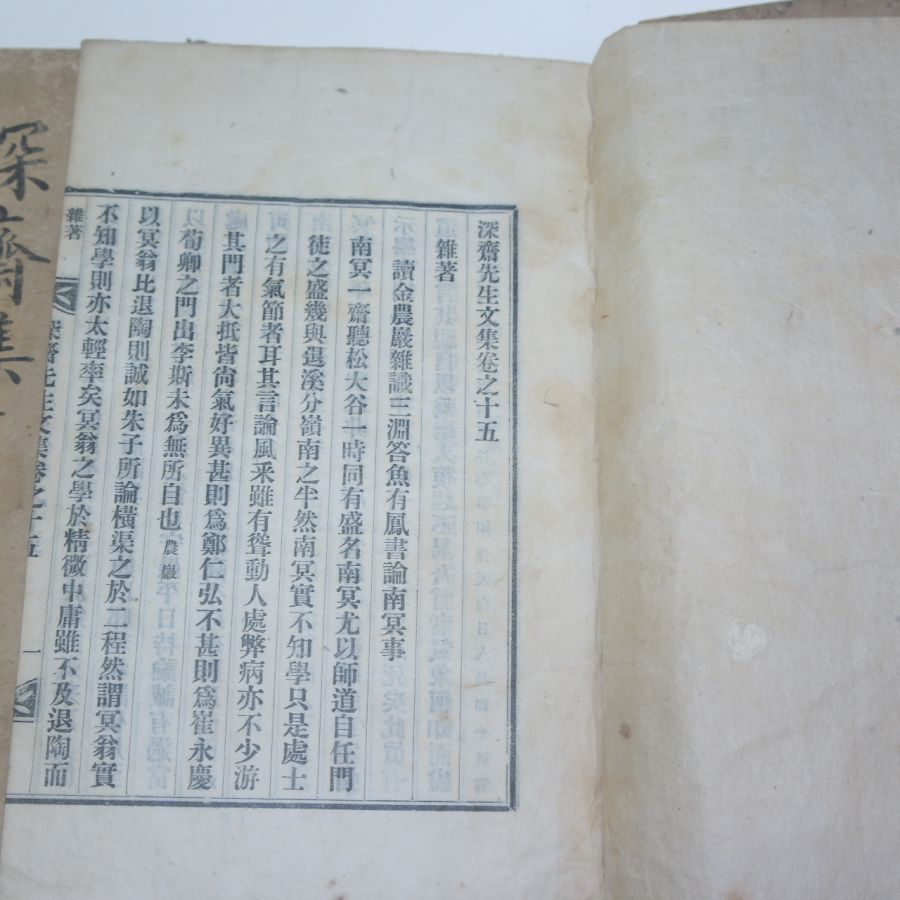 深齋先生文集卷之十五
雜著
讀金農巖雜識三淵答魚有鳳書論南冥事
南冥一齋聽松大谷一時同有盛名南冥尤以師道自任門
徒之盛幾與退溪分嶺南之半然南冥實不知學只是處士
之有氣節者耳其言論風釆雖有聳動人處弊病亦不少游
其門者大抵皆尙氣好異甚則爲鄭仁弘不甚則爲崔永慶
以荀卿之門出李斯未爲無所自也農巖
以冥翁比退陶則誠如朱子所論橫渠之於二程然謂冥翁實
不知學則亦太輕率矣冥翁之學於精微中庸雖不及退陶而
雜著
深齋先生文集卷之十五
一
深齋集